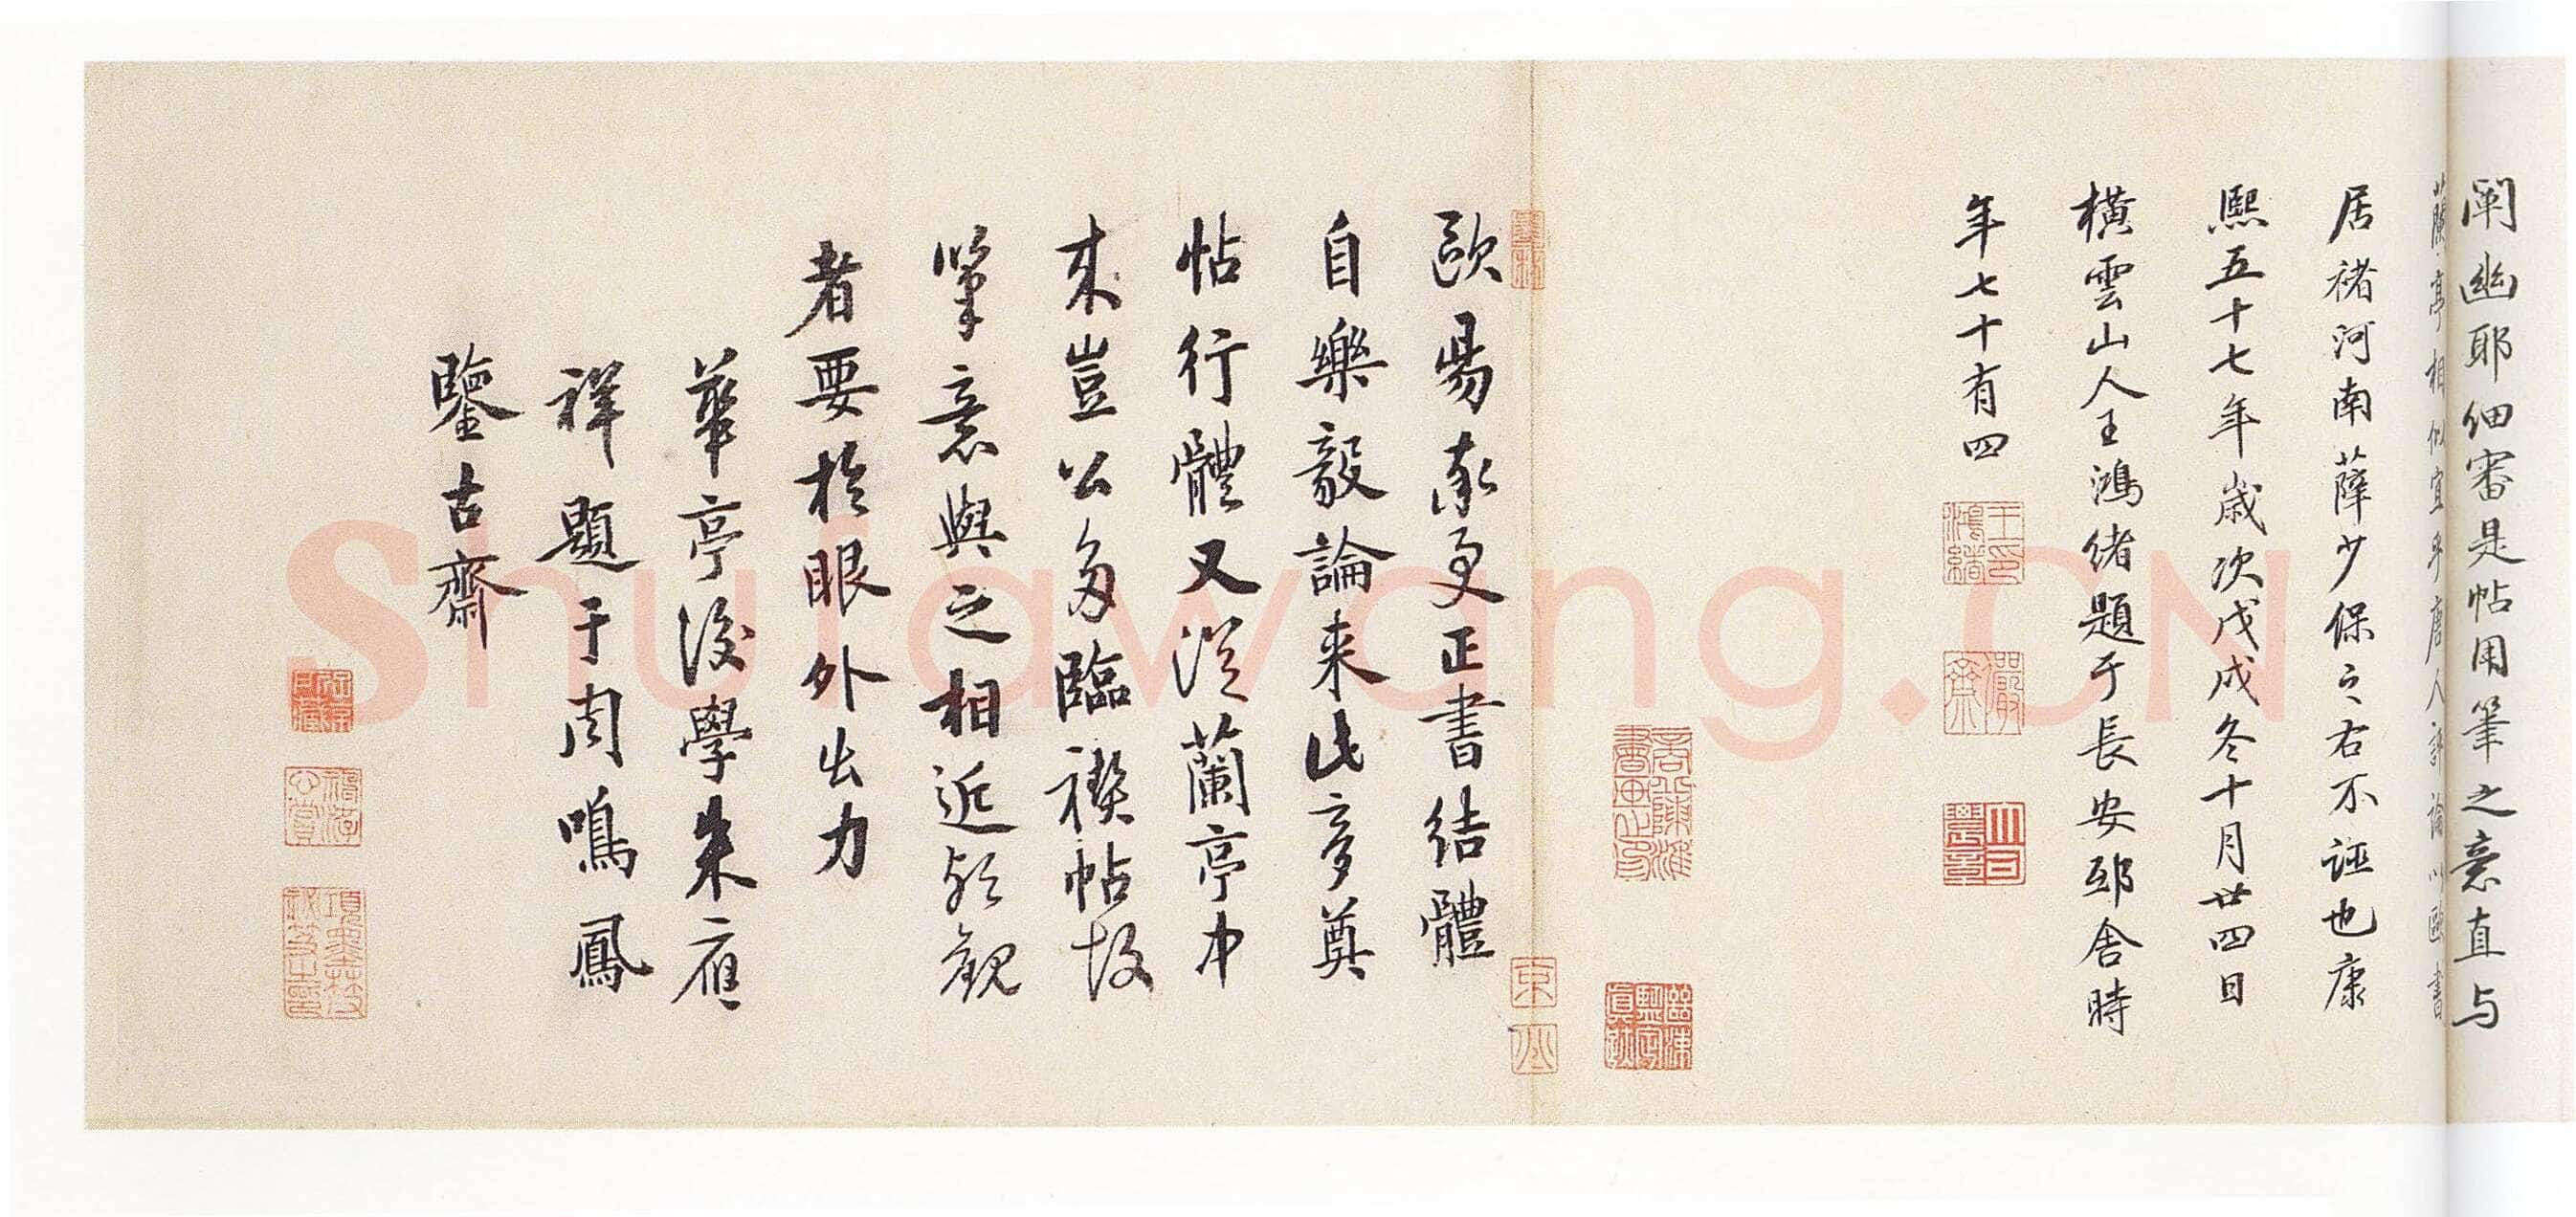 闡幽耶細審是帖用筆之意直与
蘭亭相似宜乎唐人評論以歐書
居褚河南薛少保之右不誣也康
熙五十七年歲次戊戌冬十月廿四日
橫雲山人王鴻緒題于長安邸舍時
年七十有四
王鴻緒印
歐昜率更正書結體
自樂毅論来此夢奠
帖行體又從蘭亭中
来豈公多臨禊帖故
筆意與之相近欤觀
者要於眼外出力
華亭後學朱應
祥題于周鳴鳳
鑒古齋
shufawang.CN